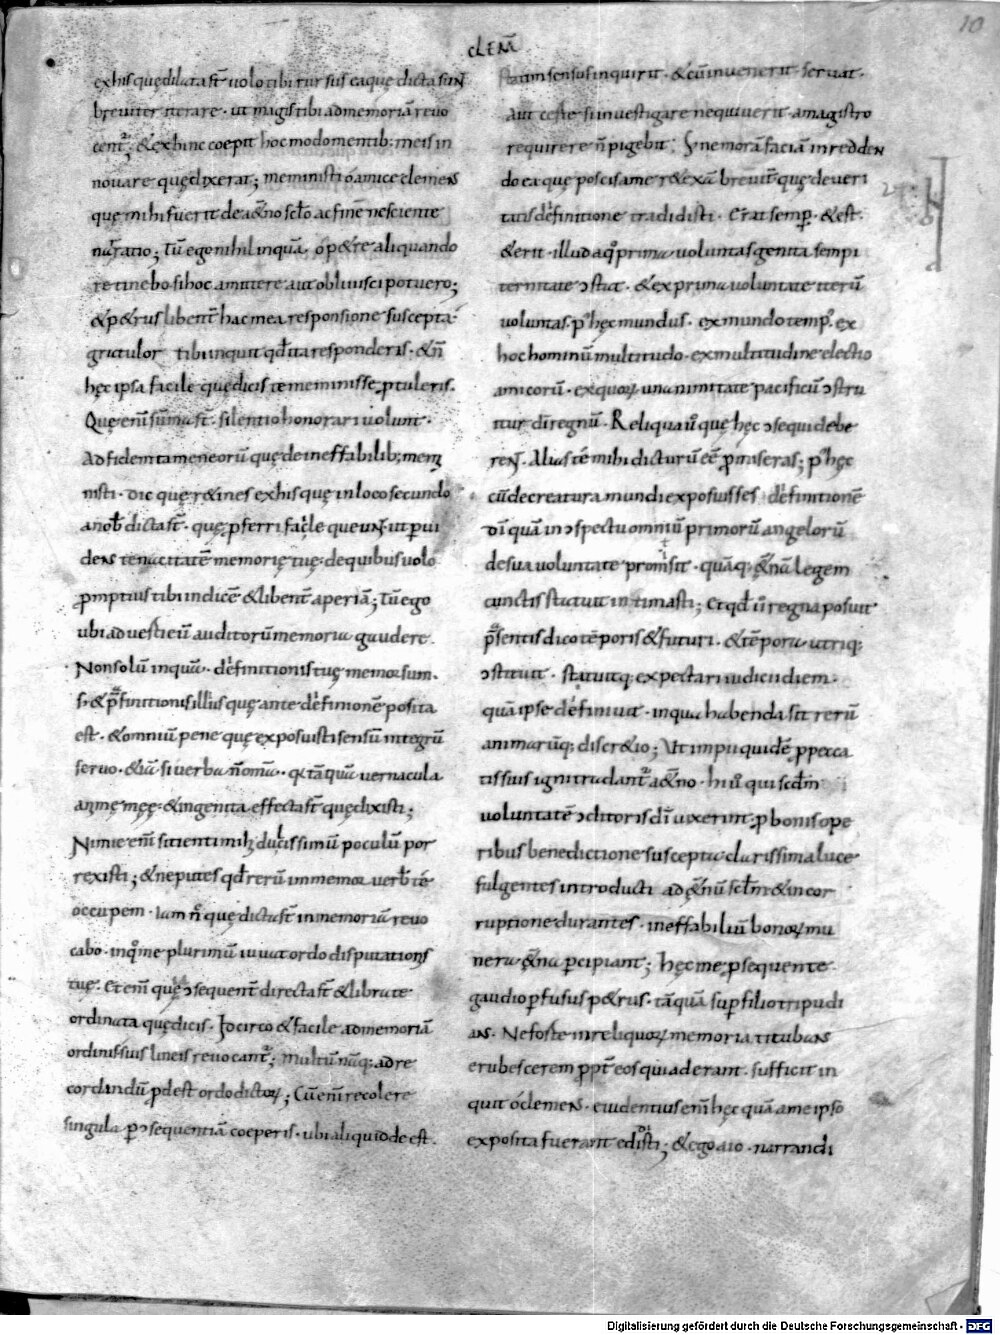 10
CLEM̄
ex his quę dilata st̄ uolo tibi rursus eaque dicta suN
breuiter iterare · ut magis tibi ad memoriā reuo
cent᷑; & ex hinc coepit hoc modo mentib: meis in
nouare quę dixerat; meministi o amice clemeNs
quę mihi fuerit de aet̄no sc̄lo ac finē nesciente
narratio; Tū ego nihil inquā o p&re aliquando
retinebo si hoc amittere aut obliuisci potuero;
& p&rus libent̄ hac mea responsione suscepta
gratulor tibi inquit qđ ita responderis · & n̄
hęc ipsa facile quę dicis te meminisse ptuleris.
Quę enī sūma st̄ · silentio honorari uolunt ·
Ad fidem tamen eorū quę de ineffabilib; mem
nisti · dic quę r&ines ex his quę in loco secundo
a nob̄ dicta st̄ · quę pferri facile queuNt · ut pui
deNs tenacitatē memorię tuę · de quibus uolo
promptius tibi indicē & libent̄ aperiā; Tū ego
ubi aduesti eū auditorū memoria gaudere ·
Non solū inquā · definitionis tuę memor sum ·
s; & pfinitionis illius quę ante definitionē posita
est · & omniū pene quę exposuisti sensū integrū
seruo · & iā si uerba n̄ om̄a · q: tāquā uernacula
animę meę · & ingenita effecta st̄ quę dixisti;
Nimie enī sitienti mihi dulcissimū poculū por
rexisti; & ne putes qđ rerū immemor uerb̄ te
occupem · Iam nc̄ quę dicta st̄ in memoriā reuo
cabo · in quo me plurimū iuuat ordo disputationis
tuę · Etenī quę ↄsequent̄ directa st̄ & librate
ordinata quę dicis · Idcirco & facile ad memoriā
ordinis suis lineis reuocant᷑; multū nāq; ad re
cordandū pdest ordo dictoꝝ; Cū enī recolere
singula p ↄsequentiā coeperis · ubi aliquid deest ·
statim sensus inquirit · & cū inuenerit seruat ·
Aut certe si inuestigare nequiuerit a magistro
requirere n̄ pigebit; S; ne morā faciā in reddeN
do ea que poscis a me r&exā breuit̄ quę de ueri
tatis definitione tradidisti · Erat semp · & est ·
& erit · illud a quo prima uoluntas genita sempi
ternitate ↄstat · & ex prima uoluntate iterū
uoluntas · p hęc mundus · ex mundo temp᷒ · ex
hoc hominū multitudo · ex multitudine electio
amicorū · ex quoꝝ unanimitate pacificū ↄstru
itur dī regnū · Reliqua ū quę hęc ↄsequi debe
reNt · Alias te mihi dicturū eē promiseras; p hęc
cū de creatura mundi exposuisses definitionē
dī quā in ↄspectu omniū primorū angelorū
de sua uoluntate promisit · quāq; &n̄ā legem
cunctis statuit intimasti; Et qđ ii regna posuit
psentis dico tēporis & futuri · & tēpora utriq;
ↄstituit · statuitq; expectari iudicii diem ·
quā ipse definiuit · in qua habenda sit rerū
animarūq; discr&io; Ut impii quidē p pecca
tis suis igni tradant᷑ aet̄no · hi ū qui scdm̄
uoluntatē ↄditoris dī uixerint p bonis ope
ribus benedictione suscepta clarissima luce
fulgentes introducti ad aet̄nū sc̄lm & in cor
ruptione durantes · ineffabiliū bonoꝝ mu
nera aet̄na pcipiant; hęc me psequente
gaudio pfusus p&rus · tāquā sup filio tripudi
aNs · Ne forte in reliquoꝝ memoria titubaNs
erubescerem ppt̄ eos qui aderant · sufficit in
quit o clemeNs · euidentius enī hęc quā a me ipso
exposita fuerant edisti; & ego aio · narrandi
Digitalisierung gefördert durch die Deutsche Forschungsgemeinschaft - DFG